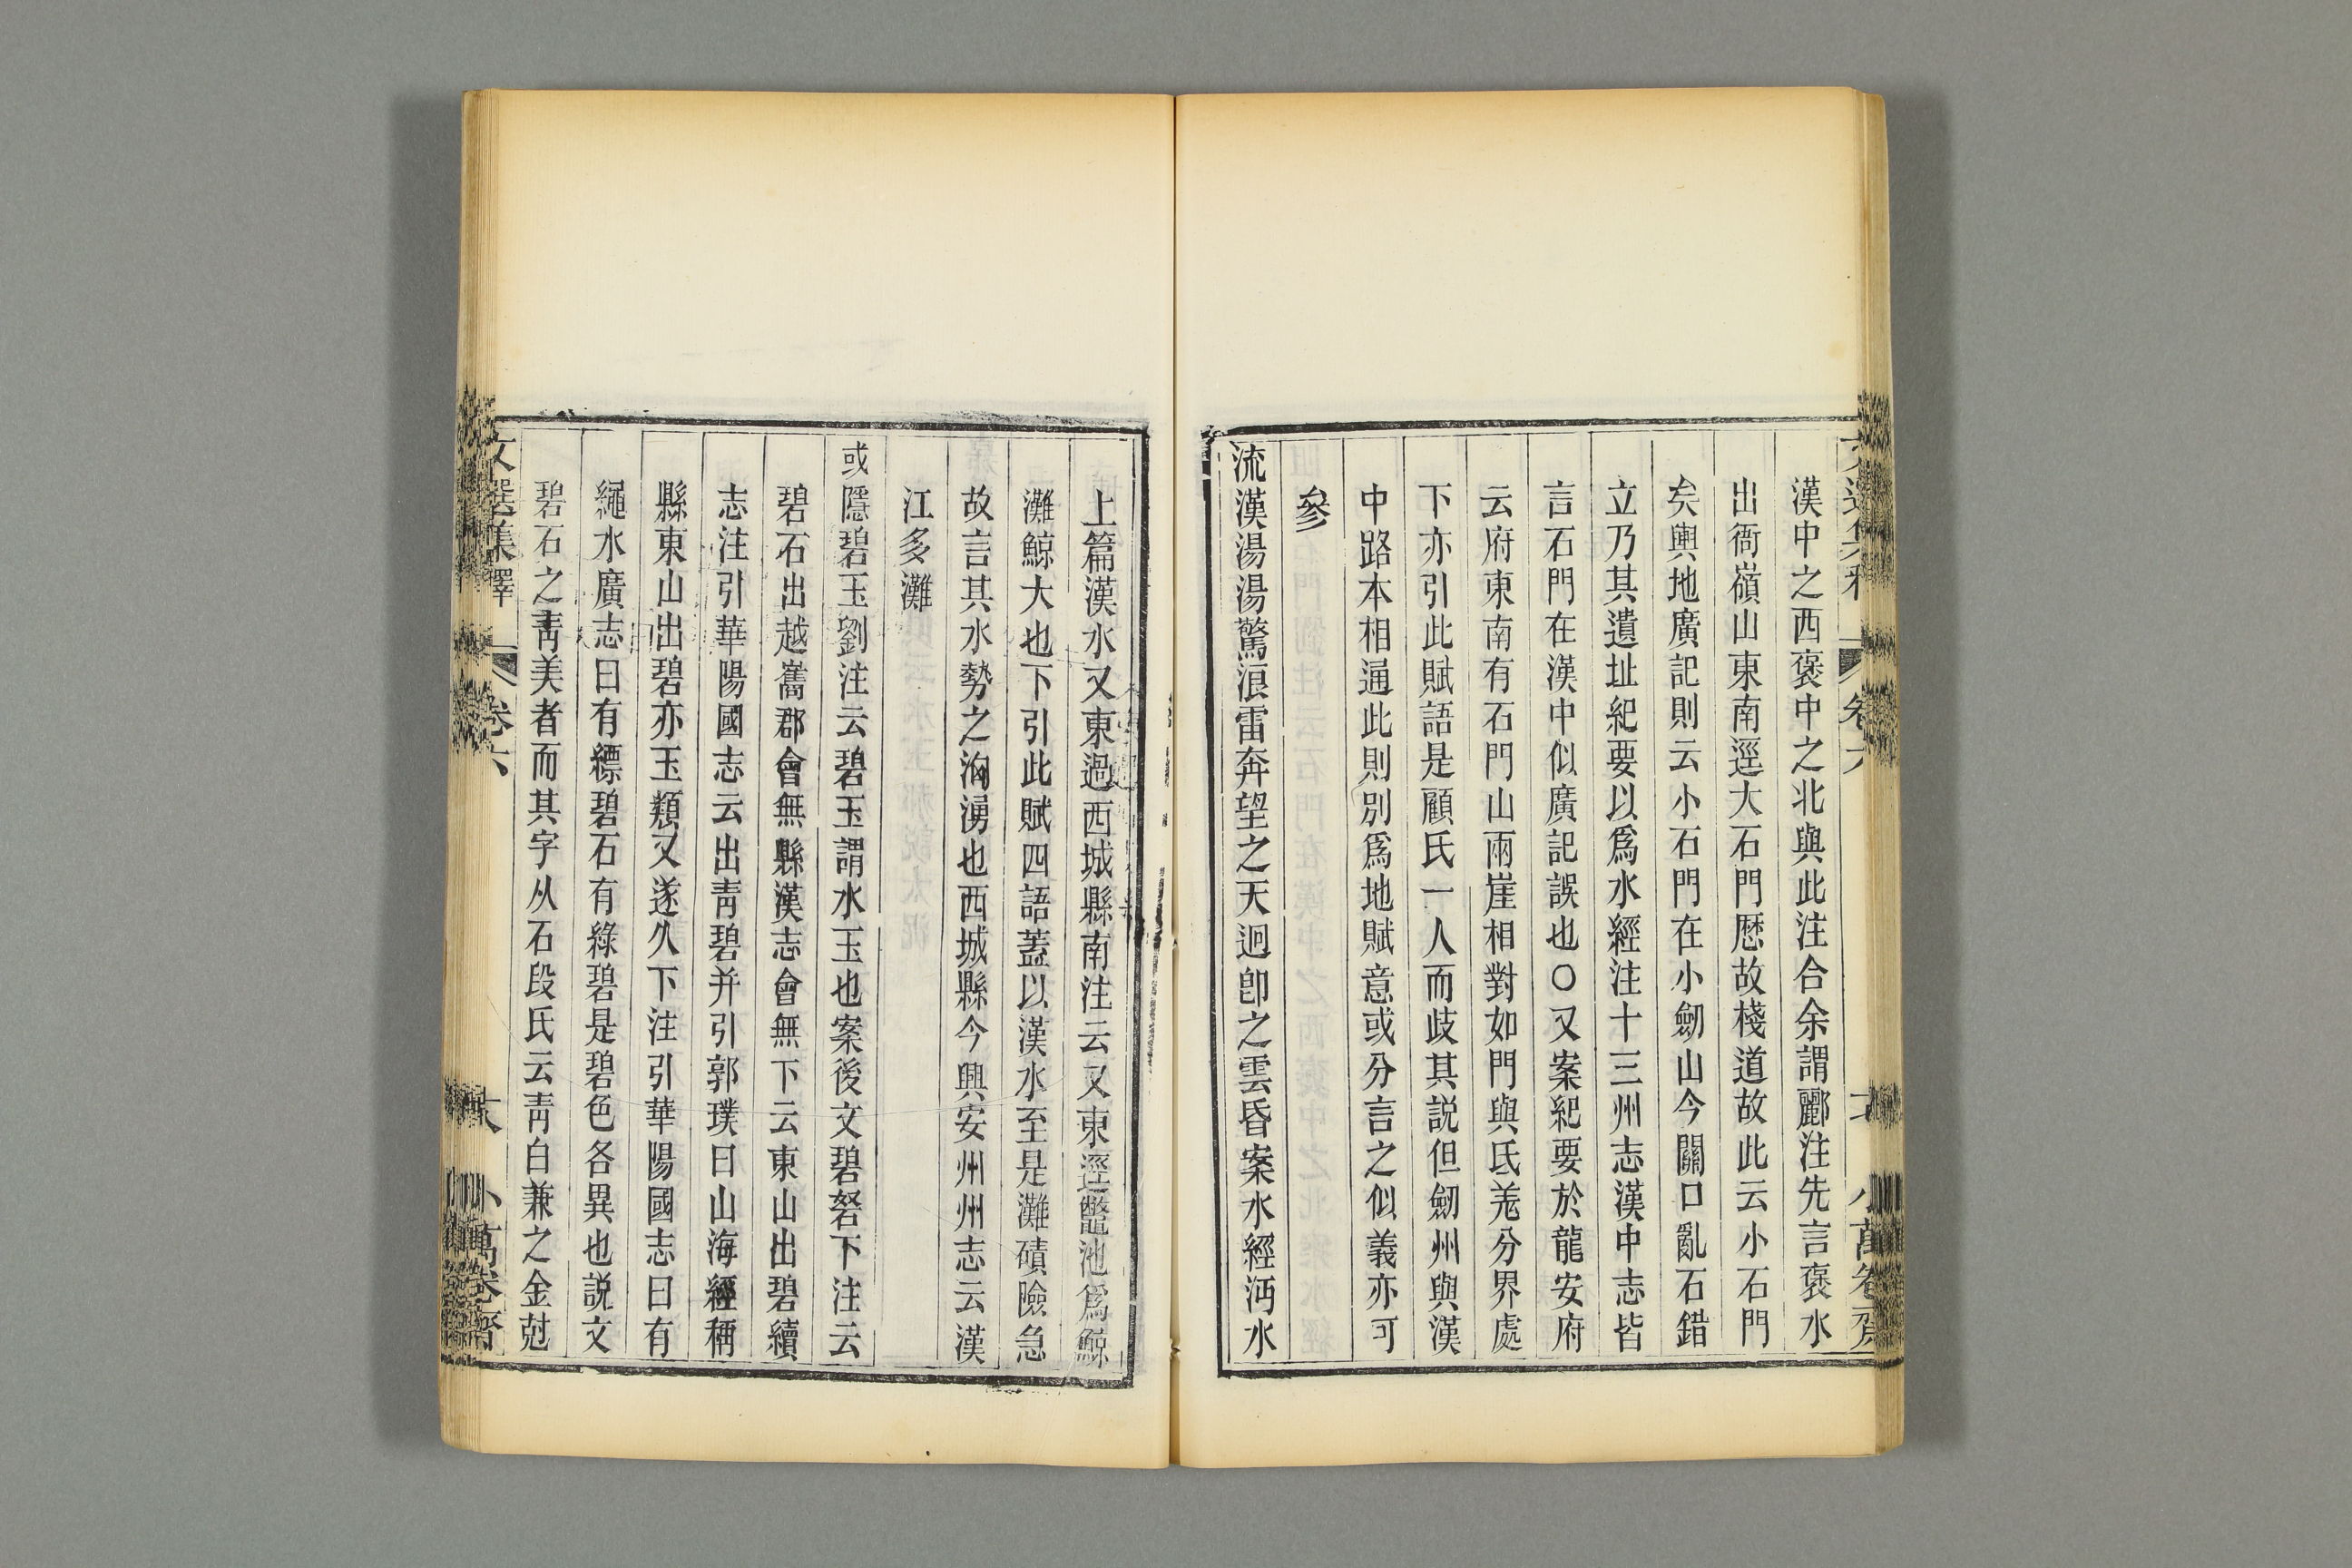 漢中之西褒中之北與此注合余謂酈注先言褒水
出衙嶺山東南逕大石門歴故棧道故此云小石門
矣輿地廣記則云小石門在小劒山今關口亂石錯
立乃其遺址紀要以爲水經注十三州志漢中志皆
言石門在漢中似廣記誤也○又案紀要於龍安府
云府東南有石門山兩崖相對如門與氐羌分界處
下亦引此賦語是顧氏一人而歧其説但劒州與漢
中路本相通此則別爲地賦意或分言之似義亦可
參
流漢湯湯驚浪雷奔望之天迥卽之雲昏案水經沔水
上篇漢水又東過西城縣南注云又東逕鼈池爲鯨
灘鯨大也下引此賦四語蓋以漢水至是灘磧險急
故言其水勢之洶湧也西城縣今興安州州志云漢
江多灘
或隱碧玉劉注云碧玉謂水玉也案後文碧砮下注云
碧石出越嶲郡會無縣漢志會無下云東山出碧續
志注引華陽國志云出靑碧并引郭璞曰山海經稱
縣東山出碧亦玉類又遂久下注引華陽國志曰有
繩水廣志曰有縹碧石有綠碧是碧色各異也説文
碧石之靑美者而其字从石段氏云靑白兼之金尅
文選集釋 卷六 小萬卷齋